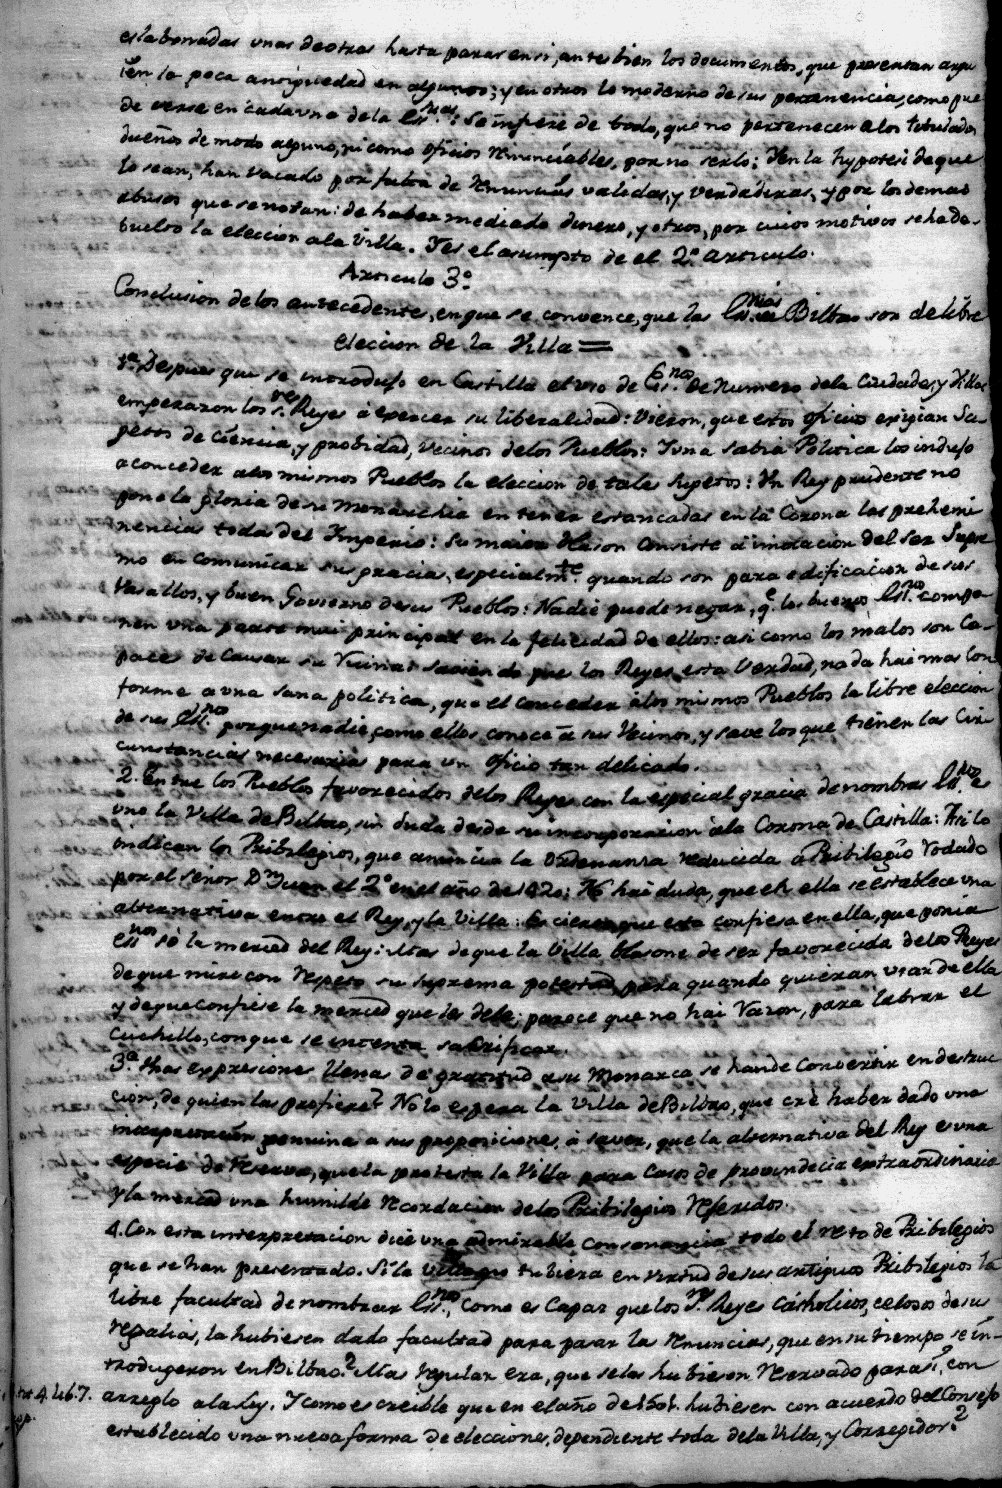 eslabonadas unas de otras hasta parar en si, antes bien los documentos, que presentan argu
ien la poca antiguedad en algunos; y en otros lo moderno de sus pertenencia, como pue
de verse en cada una de la Ess.nias: Se infiere de todo, que no pertenecen a los titulados
dueños de modo alguno, ni como oficios renunciables, por no serlo: Y en la hypotesi de que
lo sean, han vacado por falta de renuncias validas, y verdaderas, y por los demas
abusos que se notan: de haber mediado dinero, y otros, por cuios motivos se ha de-
buelto la eleccion a la Villa. Y es el asumpto de el 2.º articulo.
Articulo 3.º
Conclusion de los antecedentes, en que se convence, que las Ess.nias de Bilbao son de libre
eleccion de la Villa =
1.ª Despues que se introdujo en Castilla el uso de Ess.nos de Numero de la Ciudades, y Villas
empezaron los S.res Reyes á exercer su liberalidad: Vieron, que estos oficios exigian Su-
getos de Ciencia, y probidad, vecinos de los Pueblos: Y una sabia Politica los indujo
a conceder a los mismos Pueblos la eleccion de tales sugetos: Un Rey prudente no
pone la gloria de su Monarchia en tener estancadas en la Corona las prehemi
nencias todas del Imperio: Su maior blason consiste á imitacion del Ser Supre
mo en comunicar sus gracias, especialm.te quando son para edificacion de sus
Vasallos, y buen Govierno de sus Pueblos: Nadie puede negar, q.e los buenos Ess.nos compo
nen una parte mui principal en la felicidad de ellos: asi como los malos son Ca-
paces de Causar su Ruina: sabiendo pues los Reyes esta Verdad, nada hai mas Con
forme a una sana politica, que el conceder á los mismos Pueblos la libre eleccion
de sus Ess.nos porque nadie, como ellos, conoce á sus Vecinos, y save los que tienen las Cir
cunstancias necesarias para un oficio tan delicado.
2. Entre los Pueblos favorecidos de los Reyes con la especial gracia de nombrar Ess.nos es
uno la Villa de Bilbao, sin duda desde su incorporacion á la Corona de Castilla: Asi lo
indican los Pribilegios, que anuncia la Ordenanza reducida a Pribilegio Rodado
por el señor D.n Juan el 2.º en el año de 1420: No hai duda, que en ella se establece una
alternativa entre el Rey, y la Villa: Es cierto, que esta confiesa en ella, que ponia
ess.nos so la merced del Rey: Mas de que la Villa blasone de ser favorecida de los Reyes
de que mire con respeto su suprema potestad, para quando quieran usar de ella
y de que confiese la merced que les debe; parece que no hai razon, para labrar el
Cuchillo, con que se intenta sacrificar.
3.ª Unas expresiones llenas de gratitud a su Monarca se han de Convertir en destruc
cion, de quien las profiere? No lo espera la Villa de Bilbao, que cré haber dado una
interpretacion genuina a sus proposiciones, á saver, que la alternativa del Rey es una
especie de reserva, que la protesta la Villa para Casos de providencia extraordinaria
y la merced una humilde recordacion de los Pribilegios referidos.
4. Con esta interpretacion dice una admirable consonancia todo el resto de Pribilegios
que se han presentado. Si la Villa no tubiera en virtud de sus antiguos Pribilegios la
libre facultad de nombrar Ess.nos, como es Capaz que los S.res Reyes Catholicos, celosos de sus
regalias, la hubiesen dado facultad para pasar las renuncias, que en su tiempo se in-
trodugeron en Bilbao? Mas regular era, que se las hubiesen reservado para sí, con
arreglo a la Ley. Y como es creible que en el año de 1501. hubiesen con acuerdo del Consejo
establecido una nueva forma de elecciones, dependiente toda de la Villa, y Corregidor?
tit. 4. lib. 7.